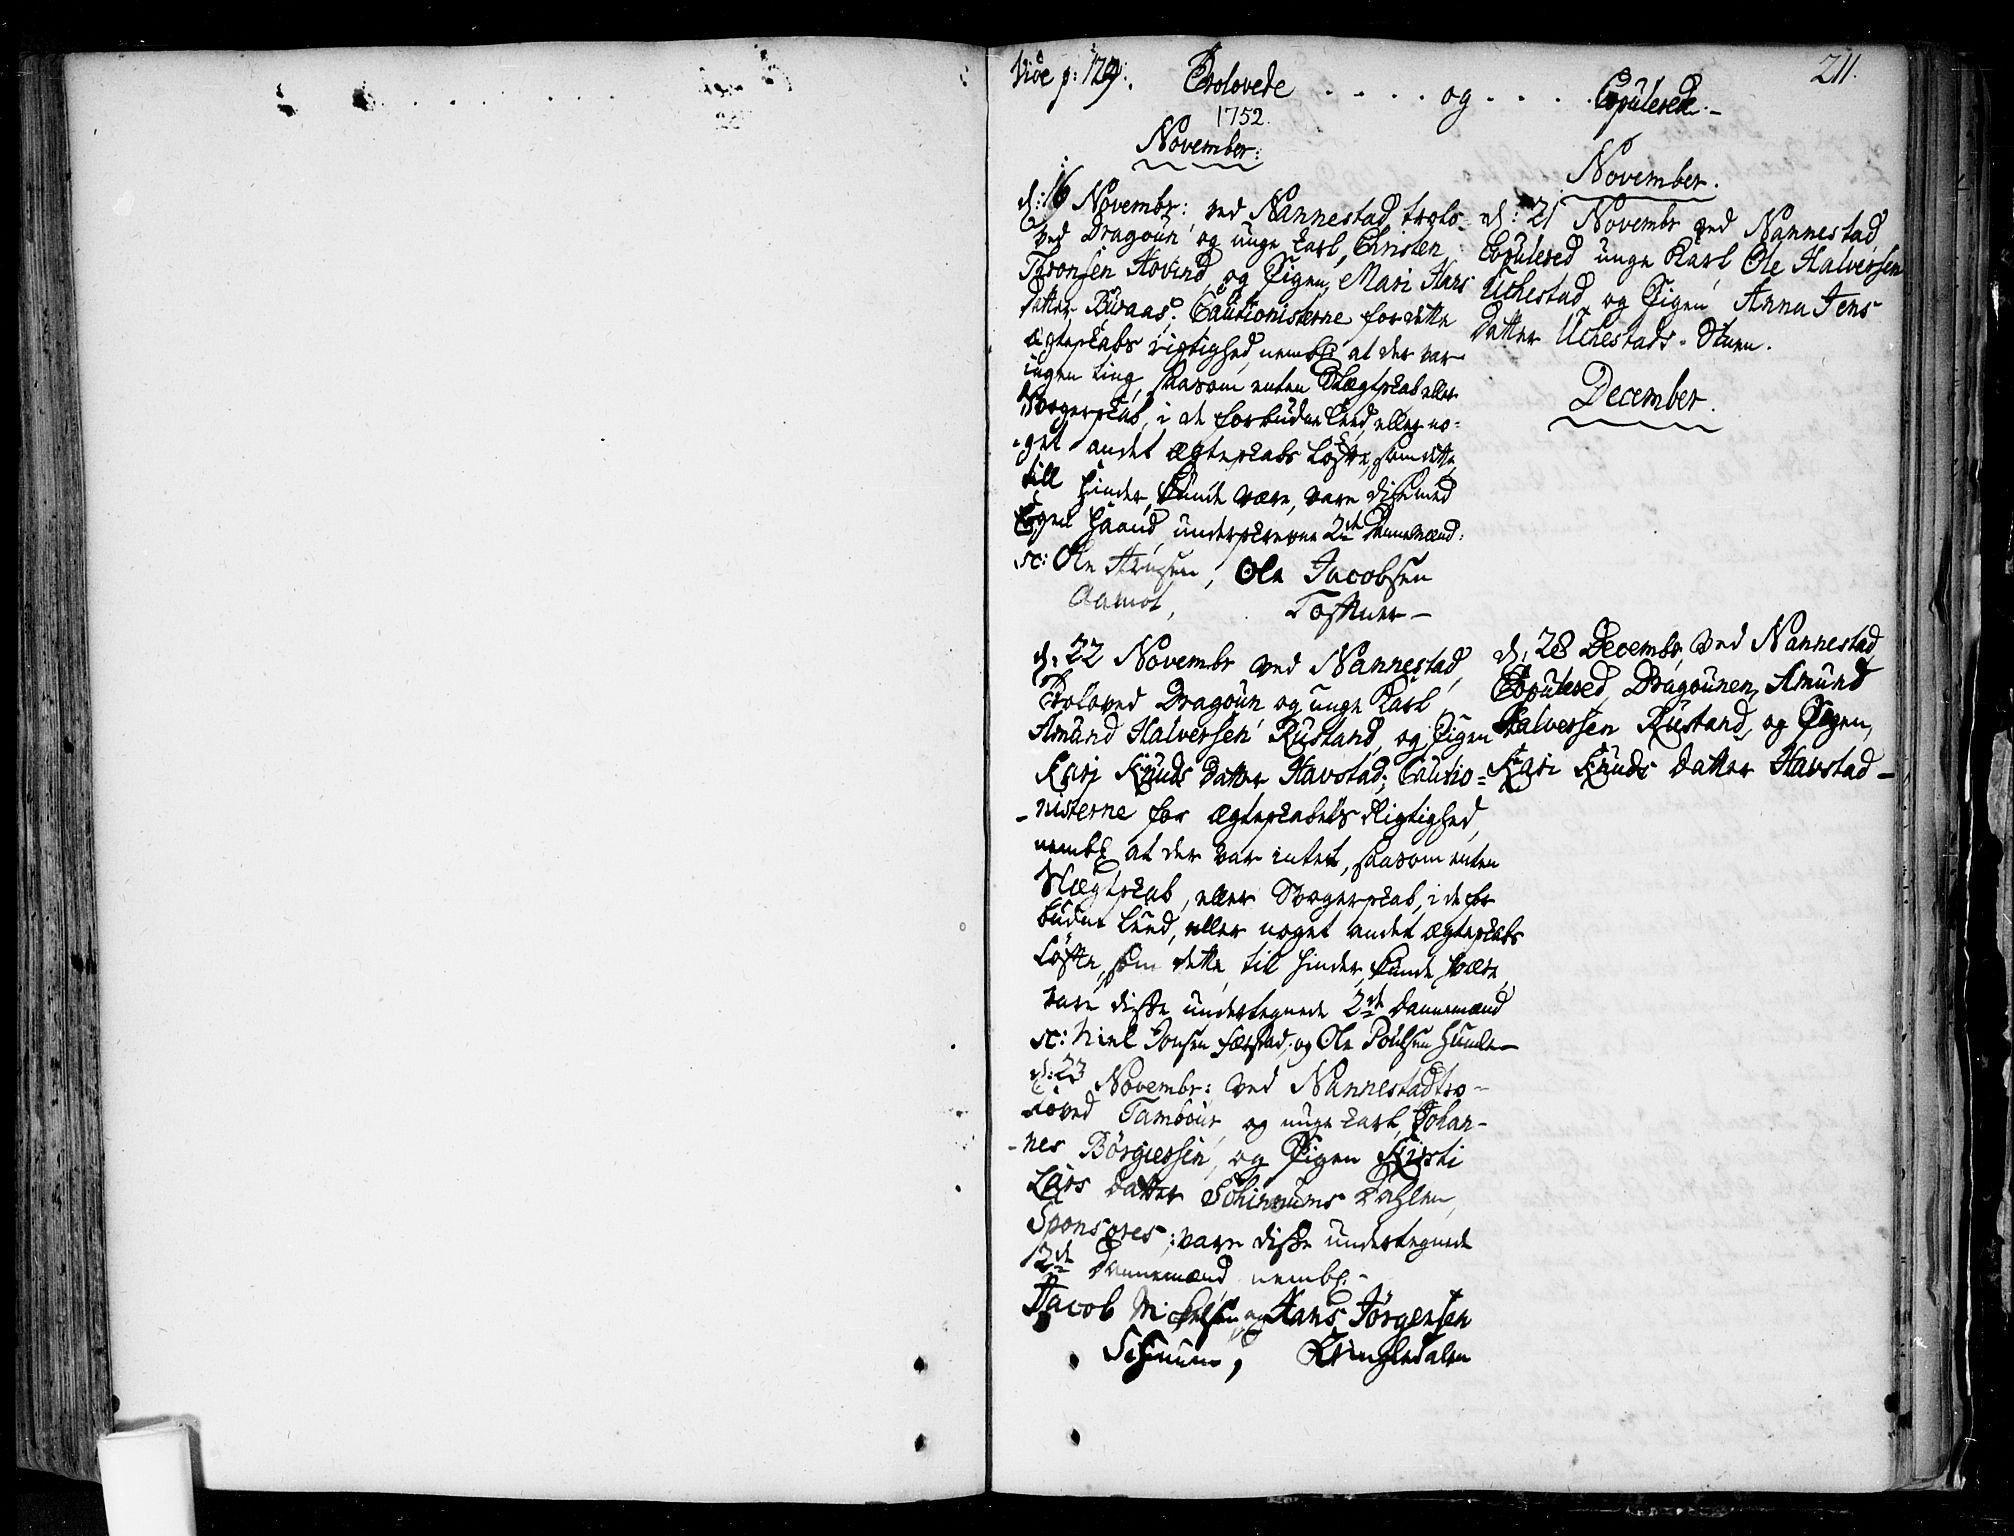 Vide p: 129. Trolovede . . . . og . . . . Copulerede. 211.
1752.
November:
d: 16 Novembr: ved Nannestad trolo-
ved Dragoun og unge Karl, Christen
Tronsen Hovind, og Pigen, Mari Hans
datter Buraas. Cautionisterne for dette
ægteskabs rigtighed, nembl: at der var
ingen ting, saasom enten Slægtskab eller
Svogerskab, i de forbudne Leed, eller no-
get andet ægteskabs Løfte, som dette
till hinder kunde være, vare disse med
Egen haand underskrevne 2de Dannemænd:
sc: Ole , Ole Jacobsen
Aamot, Toftner
d: 22 Novembr ved Nannestad,
Troloved Dragoun og unge Karl
Amund Halversen Rustand, og Pigen
Kari Knuds datter Havstad; Cautio-
nisterne for ægteskabets Rigtighed,
nembl. at der var intet, saasom enten
Slægtskab, eller Svogerskab, i de for
budne Leed, eller noget andet ægteskabs
Løfte, som dette til hinder kunde være,
vare disse undertegnede 2de Dannemænd
sc: Niel Jonsen , og Ole Poulsen Humle
d: 23 Novembr: ved Nannestad tro-
loved Tambour og unge karl, Johan-
nes Børgiersen, og Pigen Kirsti
Lars datter dahlen,
Sponsores, vare disse undertegnede
2de Dannemænd nembl.
Jacob og Hans Jørgensen
Kringledalen
November.
d: 21 Novembr ved Nannestad,
Copulered unge Karl Ole Halversen
Uchestad, og Pigen, Anna Jens
datter Uchestads-Stuen.
December.
d: 28 Decembr, ved Nannestad,
Copulered, Dragounen, Amund
Halversen Rustand, og Pigen,
Kari Knuds datter Havstad